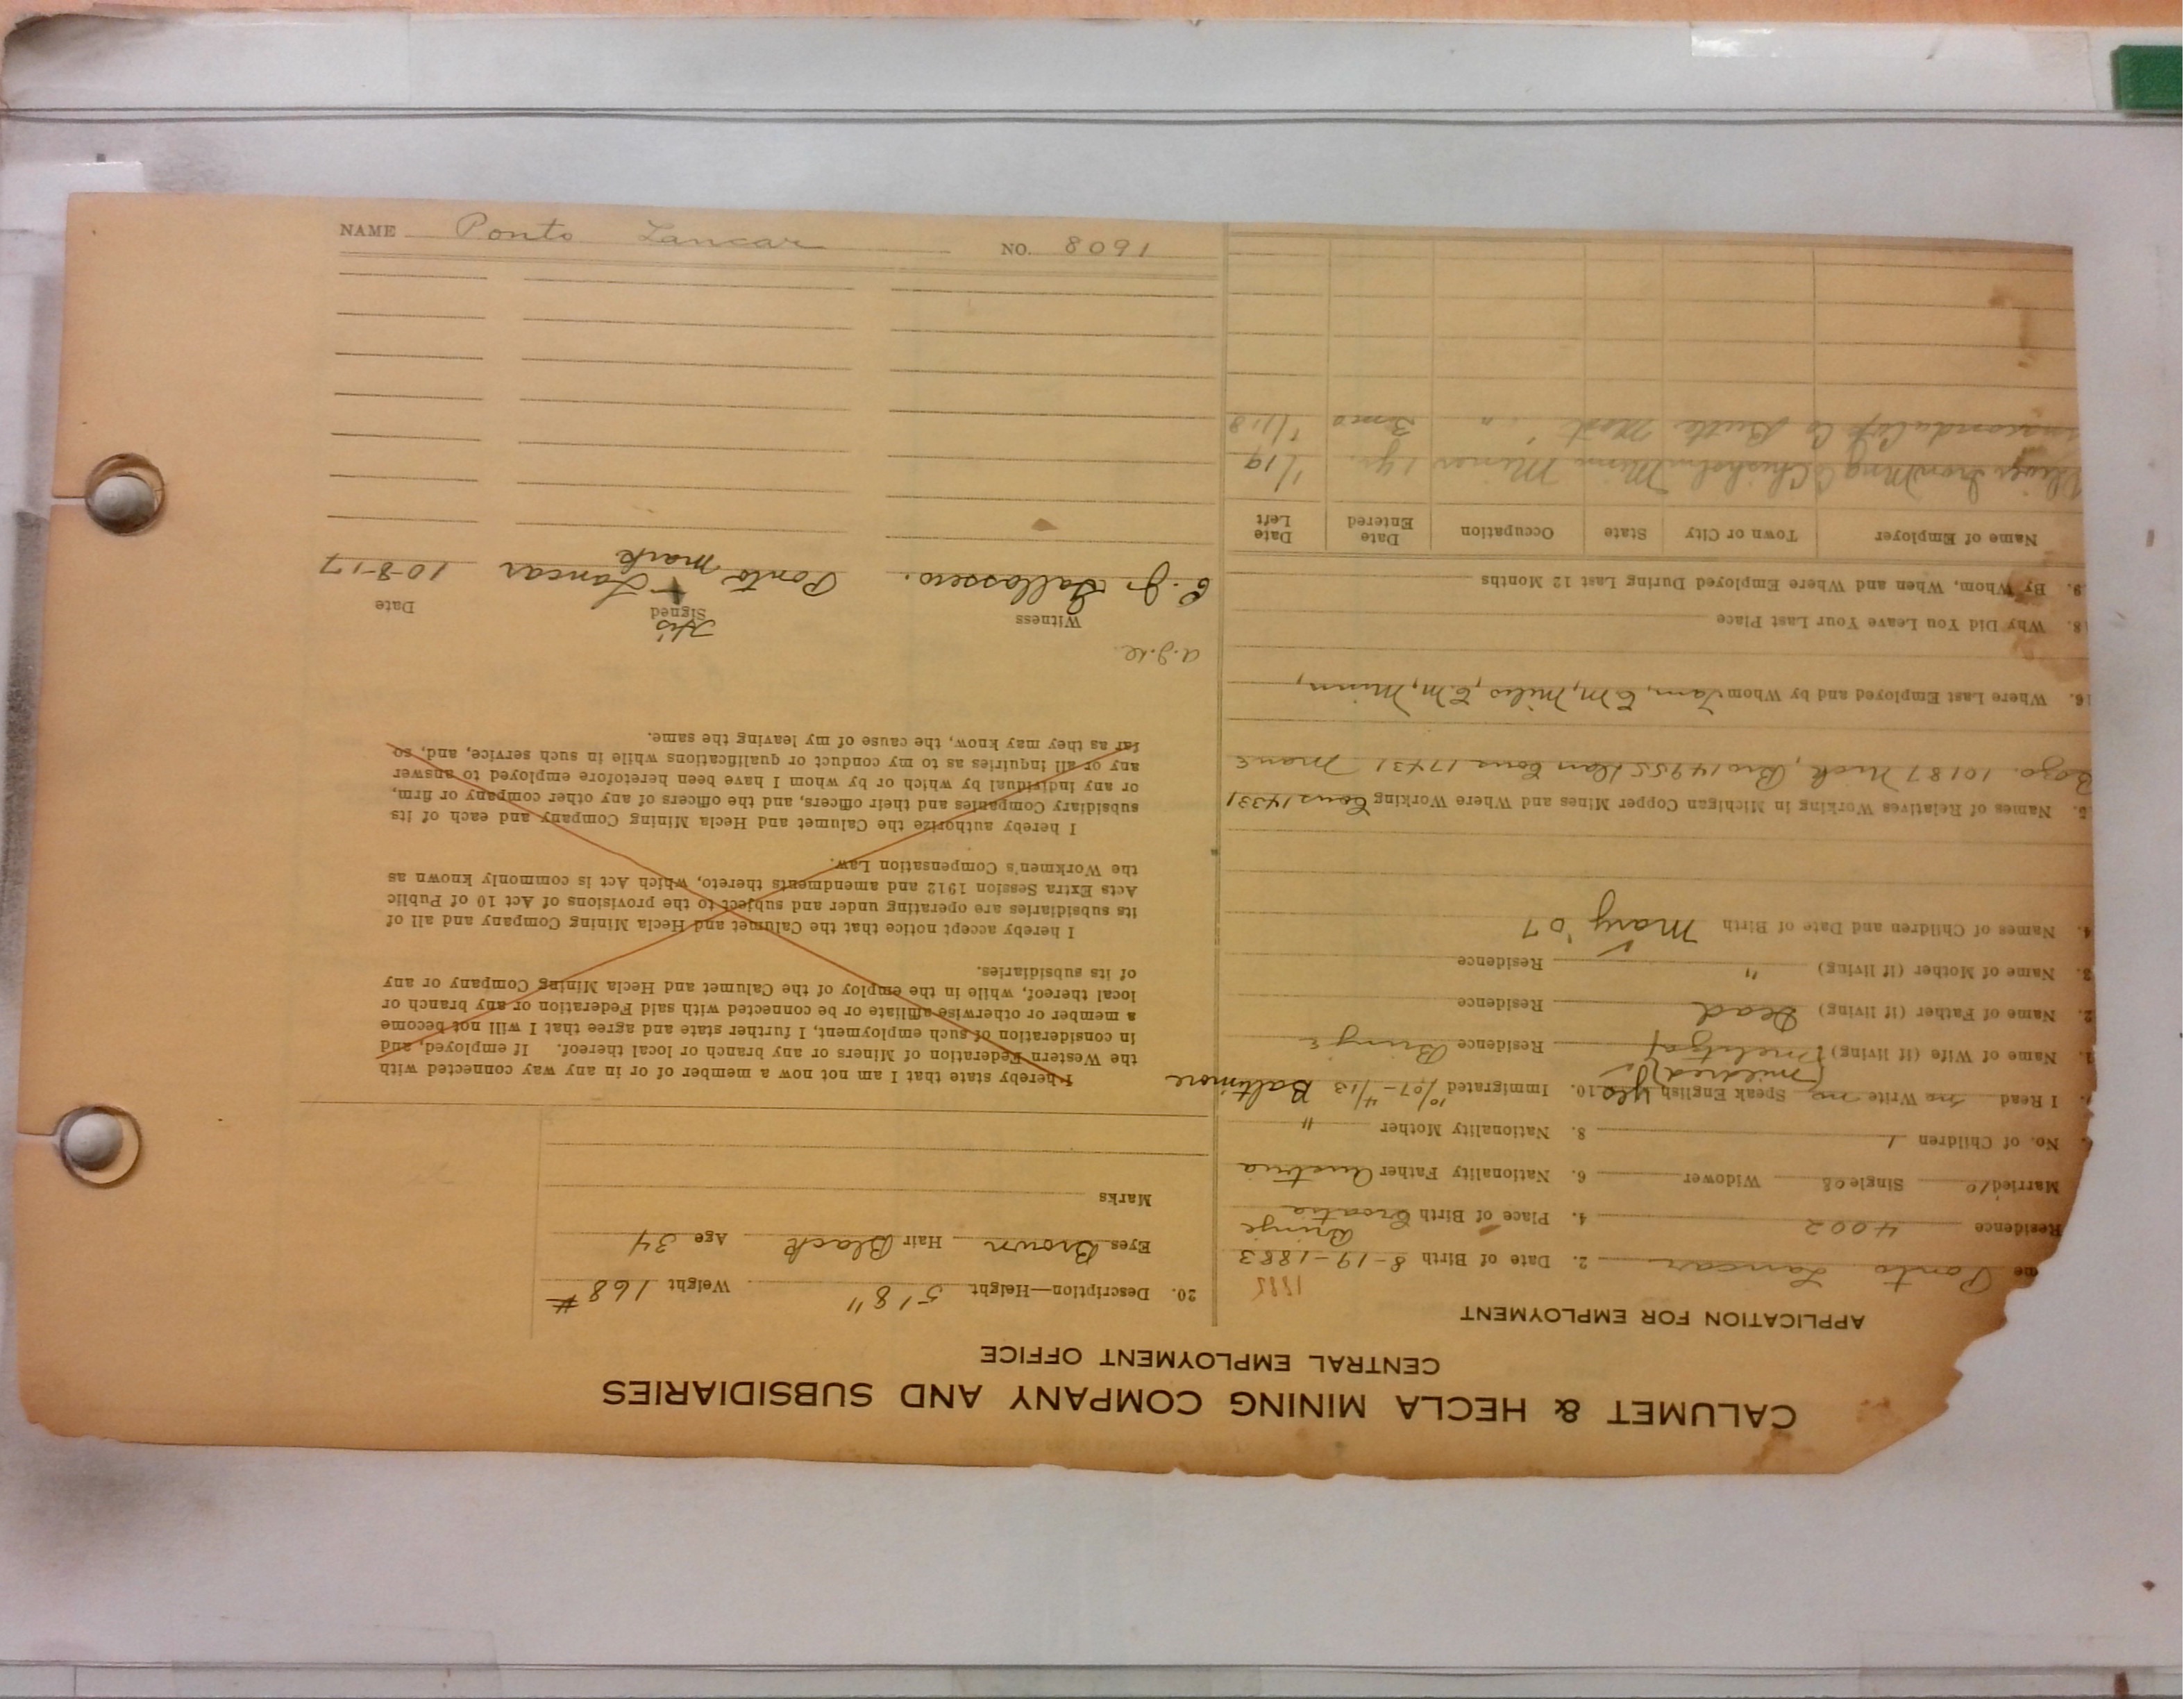 CALUMET & HECLA MINING COMPANY AND SUBSIDIARIES
CENTRAL EMPLOYMENT OFFICE
APPLICATION FOR EMPLOYMENT
me Ponto Lancar 2. Date of Birth 8-19-1883 1885
Residence 4002 4. Place of Birth Brinje Croatia
Married Single Widower 6. Nationality Father Austria
No. of Children 1 8. Nationality Mother "
I Read no Write no Speak English yes 10. Immigrated 10/07-4/13 Baltimore
1. Name of Wife (if living) (mildred) Residence Brinje
2. Name of Father (if living) Dead Residence
3. Name of Mother (if living) " Residence
4. Names of Children and Date of Birth Mary '07
5. Names of Relatives Working in Michigan Copper Mines and Where Working Cous 14331
Bozo. 10187 Nick, Bro 14955 Dan Cous 17431 Mane
16. Where Last Employed and by Whom Tam, E M, Miles, E. M, Minn,
18. Why Did You Leave Your Last Place
19. By Whom, When and Where Employed During Last 12 Months
Name of Employer Town or City State Occupation Date Entered Date Left
Oliver Iron Mng Co Chisholm Minn Miner 1 yr. 1/19
Anaconda Cop Co Butte Mont " 3 mo 1/118
20. Description—Height 5'8" Weight 168#
Eyes Brown Hair Black Age 34
Marks
I hereby state that I am not now a member of or in any way connected with
the Western Federation of Miners or any branch or local thereof. If employed, and
in consideration of such employment, I further state and agree that I will not become
a member or otherwise affiliate or be connected with said Federation or any branch or
local thereof, while in the employ of the Calumet and Hecla Mining Company or any
of its subsidiaries.
I hereby accept notice that the Calumet and Hecla Mining Company and all of
its subsidiaries are operating under and subject to the provisions of Act 10 of Public
Acts Extra Session 1912 and amendments thereto, which Act is commonly known as
the Workmen's Compensation Law.
I hereby authorize the Calumet and Hecla Mining Company and each of its
subsidiary Companies and their officers, and the officers of any other company or firm,
or any individual by which or by whom I have been heretofore employed to answer
any or all inquiries as to my conduct or qualifications while in such service, and, so
far as they may know, the cause of my leaving the same.
a.g.k.
Witness Signed Date
His
E. J. Gallassero. Ponto + Lancar 10-8-17
mark
NAME Ponto Lancar NO. 8091